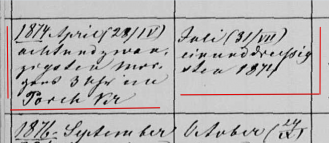 1874 April (28/IV)
achtundzwan
zigsten Mor
gens 3 Uhr in
Juli (31/VII)
einunddreißig
sten 1874
1876. September
October